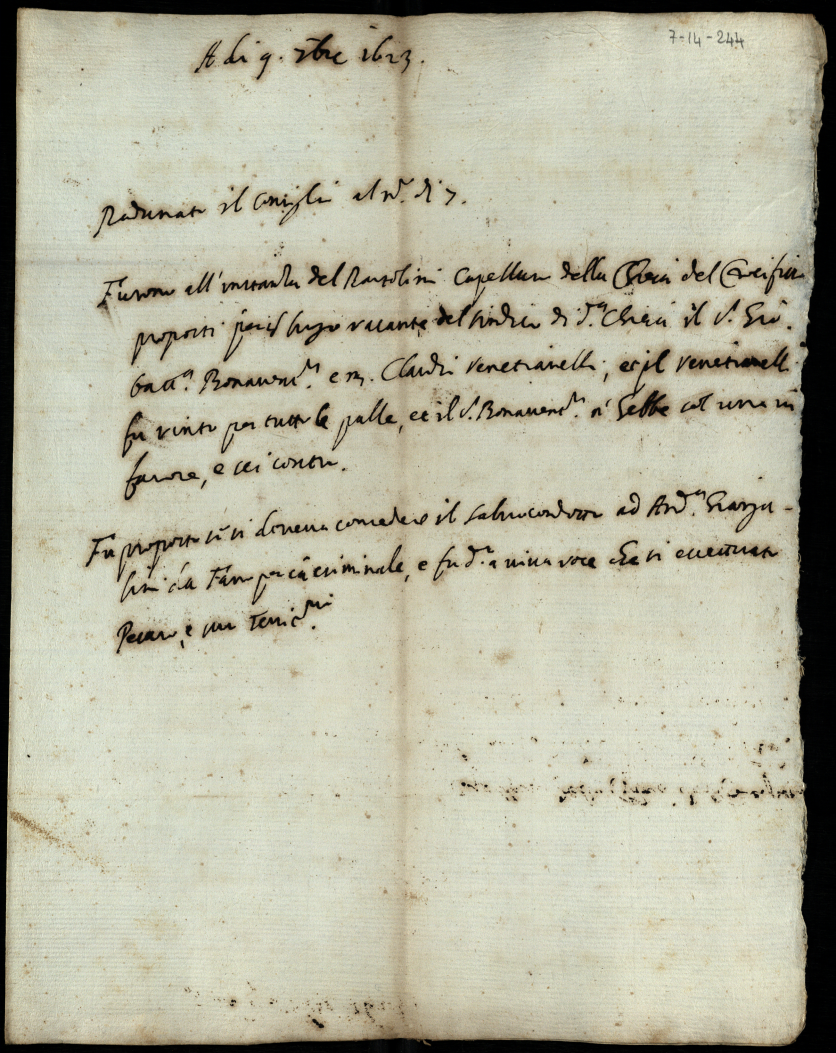 7-14-244
A di 9. 7bre 1623.
Radunato il Conseglio al n.º di 7.
Furono all'instanza del Bartolini Capellano della Chiesa del Crocifisso
proposti per il luogo vacante del sindico di d.ª Chiesa il S. Gio.
Batt.ª Bonavent.ª e m. Claudio Venetianelli, et il Venetianelli
fu vinto per tutte le palle, et il S. Bonavent.ª n' hebbe sol una in
favore, e sei contra.
Fu proposto se si doveva concedere il salvocondotto ad And.ª
da Fano per ca criminale, e fu d.º a viva voce che si eccettuasse
Pesaro, e suo Territ.º